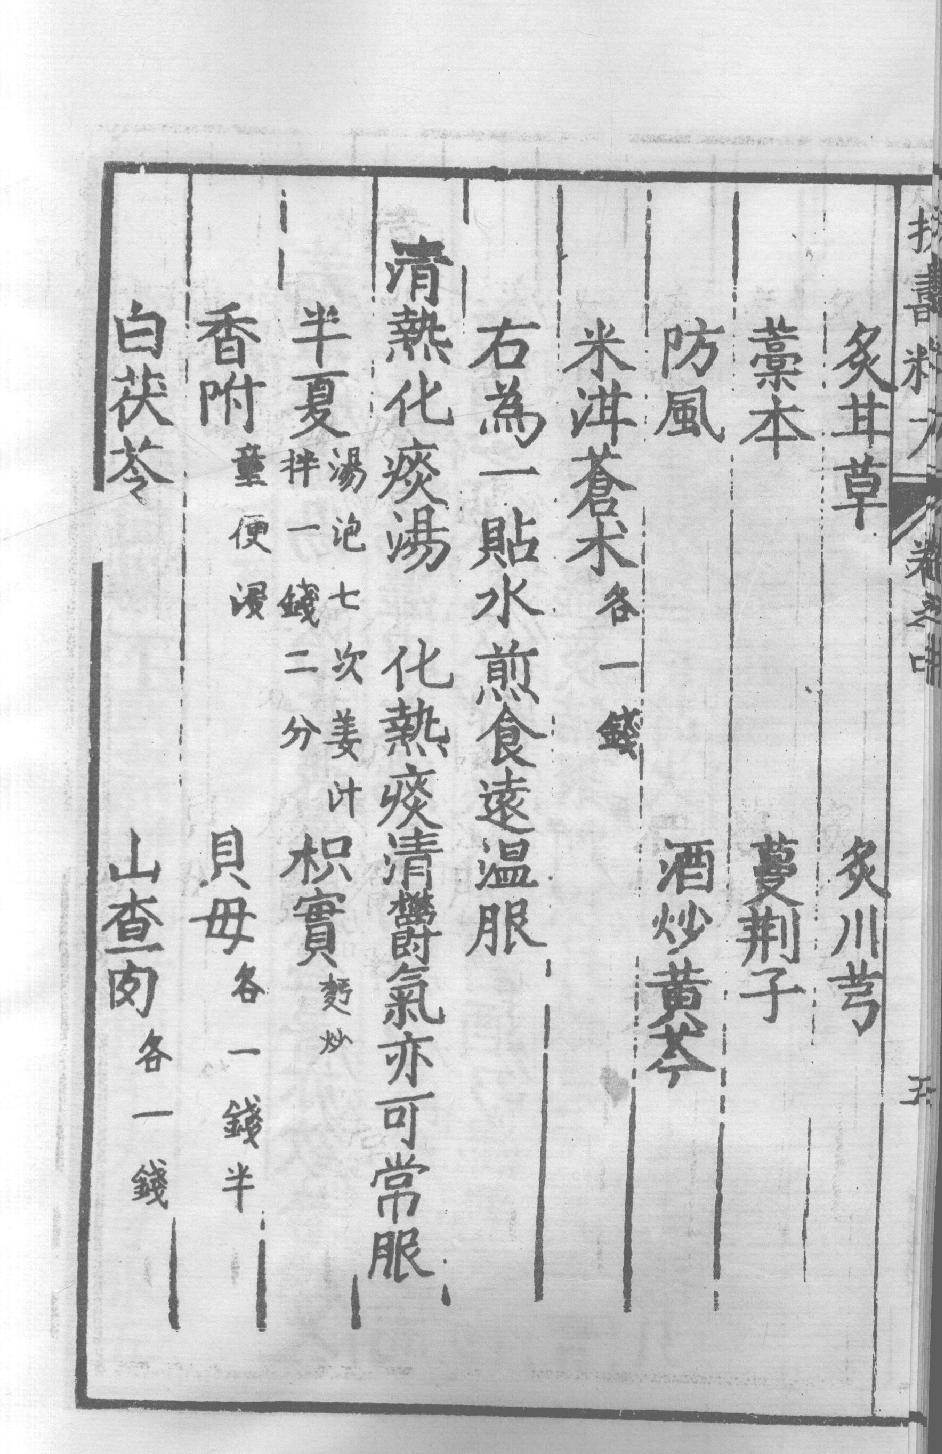 炙甘草　炙川芎
藁本　蔓荆子
防風　酒炒黃芩
米泔蒼术各一錢
右為一貼水煎食遠温服
清熱化痰湯　化熱痰清鬱氣亦可常服
半夏湯泡七次姜汁拌一錢二分　枳實麪炒
香附童便浸　貝母各一錢半
白茯苓　山查肉各一錢